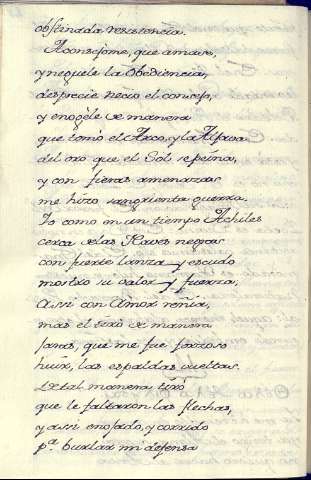 obstinada resistencia.
Aconsejome, que amase,
y neguele la obediencia,
desprecie necio el consejo,
y enojèle de manera
que tomò el Arco, y la Aljava
del oro que el Sol se peina,
y con fieras amenazas
me hizo sangrienta guerra.
Yo como en un tiempo Achiles
cerca de las Naves negras
con fuerte lanza y escudo
mostro su valor y fuerza,
Assi con Amor reñia,
mas el tirò de manera
jaras, que me fue forzoso
huir, las espaldas vueltas.
De tal manera tirò
que le faltaron las flechas,
y assi enojado, y corrido
pª. burlar mi defensa